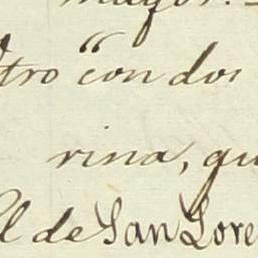 mayor.
tro con dos
rina, qu
l de San Lore